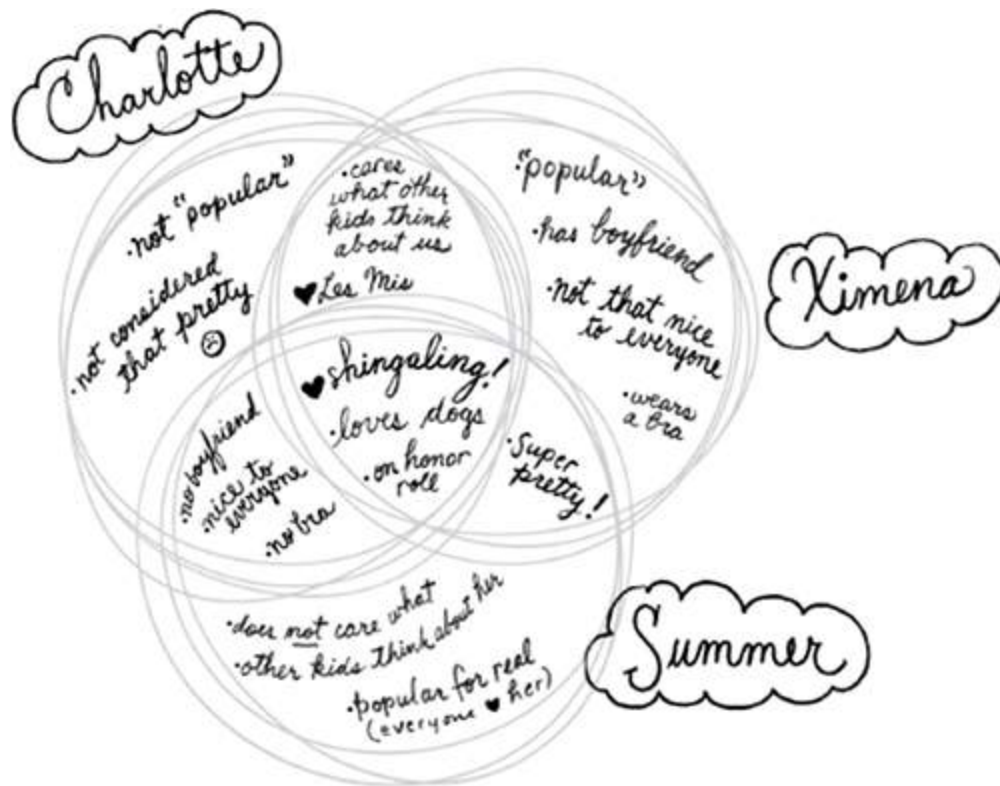 Charlotte
• not "popular"
• not considered
that pretty
☹
• cares
what other
kids think
about us
♥ Les Mis
• "popular"
• has boyfriend
• not that nice
to everyone
• wears
a bra
Ximena
♥ shingaling!
• loves dogs
• on honor
roll
• no boyfriend
• nice to
everyone
• no bra
• Super
pretty!
• does not care what
• other kids think about her
• popular for real
(everyone ♥ her)
Summer